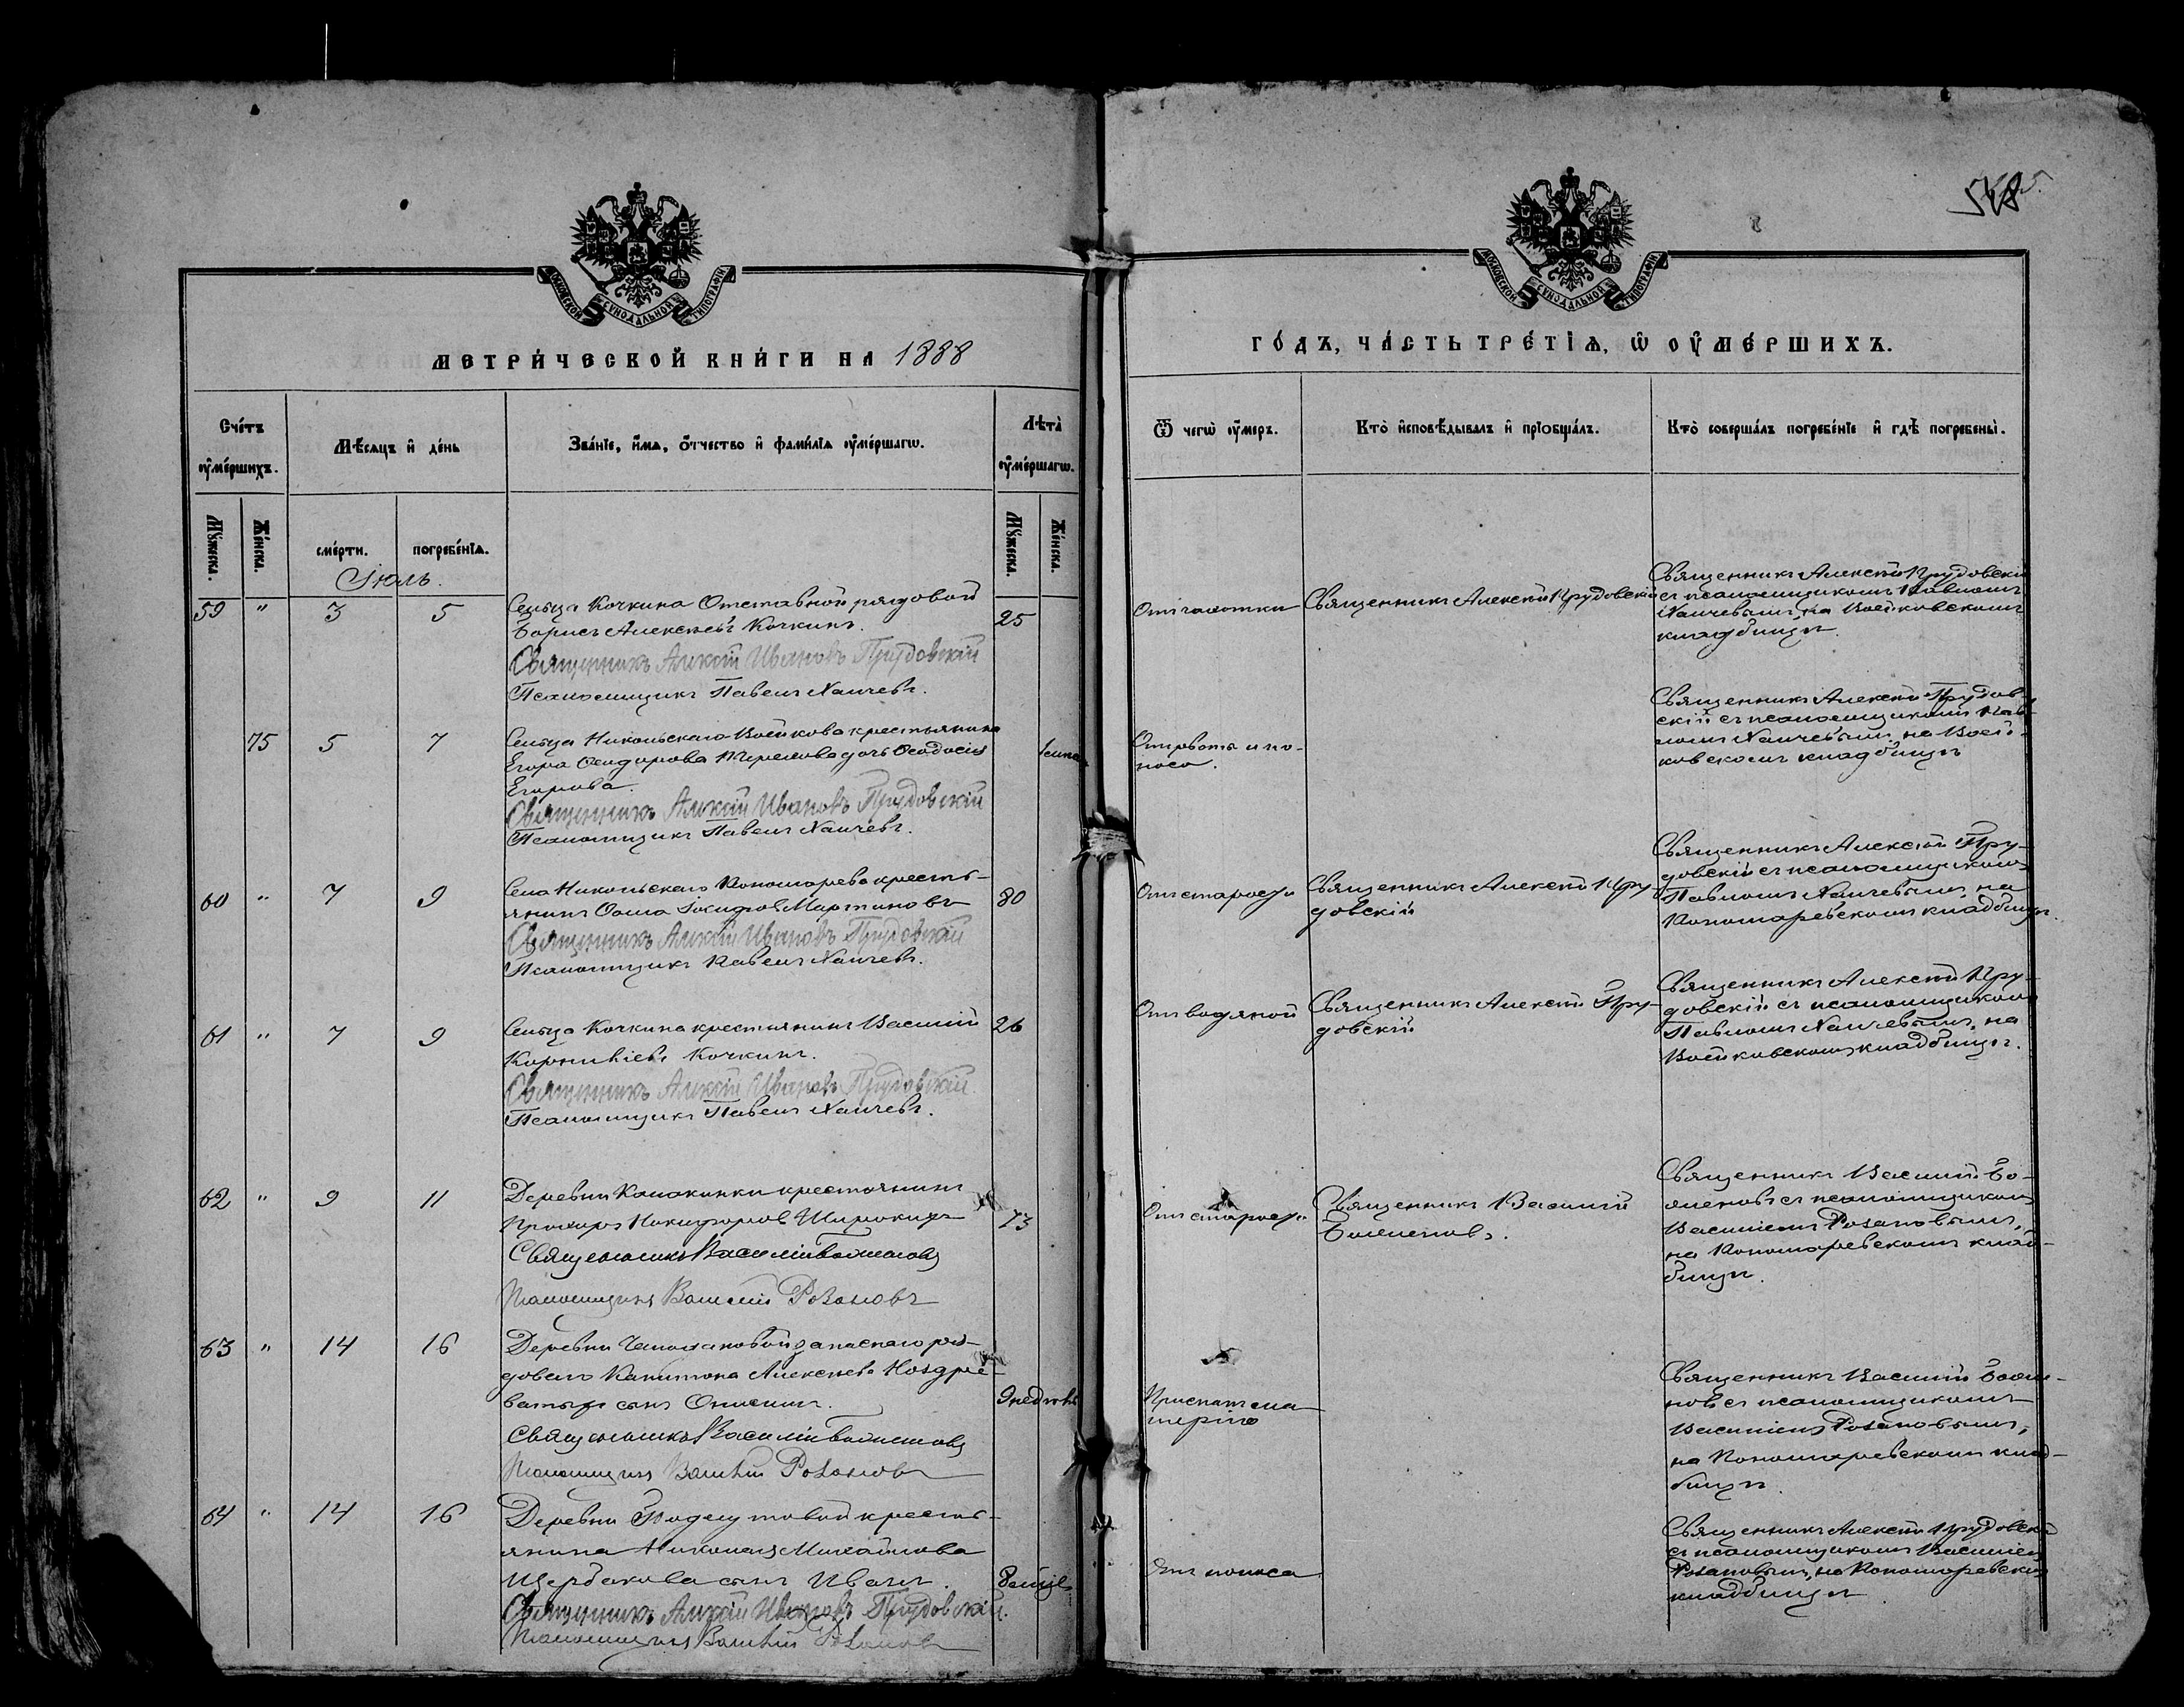 548
МОСКОВСКОЙ СѴНОДАЛЬНОЙ ТИПОГРАФІИ
МОСКОВСКОЙ СѴНОДАЛЬНОЙ ТИПОГРАФІИ
МЕТРИ́ЧЕСКОЙ КНИ́ГИ НА 1888
ГО́ДЪ, ЧА́СТЬ ТРЕ́ТІѦ, Ѡ ОУМЕ́РШИХЪ.
Счетъ оумершихъ.
Мѣсяцъ и день
Званіе, имя, отчество и фамилія оумершагѡ.
Лѣта оумершагѡ.
Ѿ чегѡ оумеръ.
Кто исповѣдывалъ и пріобщалъ.
Кто совершалъ погребеніе и гдѣ погребены.
Мужеска.
Женска.
смерти.
погребенія.
Мужеска.
Женска.
Іюль.
59 " 3 5
Сельца Кочкина Отставной рядовой
Борисъ Алексѣевъ Кочкинъ.
25
Священникъ Алексій Ивановъ Прудовскій
Псаломщикъ Павелъ
Отъ чахотки
Священникъ Алексѣй Прудовскій
Священникъ Алексѣй Прудовскій
съ псаломщикомъ Павломъ
на Воейковскомъ
кладбищѣ.
75 5 7
Сельца Никольскаго Воейкова крестьянина
Егора Ѳеодорова дочь Ѳеодосія
Егорова.
Священникъ Алексій Ивановъ Прудовскій
Псаломщикъ Павелъ
Отъ рвоты и по-
носа.
Священникъ Алексѣй Прудов-
скій съ псаломщикомъ Пав-
ломъ на Воей-
ковскомъ кладбищѣ
60 " 7 9
Села Никольскаго Пономарева кресть-
янинъ Ѳома Мартиновъ
80
Священникъ Алексій Ивановъ Прудовскій
Псаломщикъ Павелъ
Отъ старости
Священникъ Алексѣй Пру-
довскій
Священникъ Алексѣй Пру-
довскій съ псаломщикомъ
Павломъ на
Пономаревскомъ кладбищѣ.
61 " 7 9
Сельца Кочкина крестьянинъ Василій
Корниліевъ Кочкинъ.
26
Священникъ Алексій Ивановъ Прудовскій
Псаломщикъ Павелъ
Отъ водяной
Священникъ Алексѣй Пру-
довскій
Священникъ Алексѣй Пру-
довскій съ псаломщикомъ
Павломъ на
Воейковскомъ кладбищѣ.
62 " 9 11
Деревни крестьянинъ
Прохоръ Никифоровъ Широкихъ
73
Священникъ Василій
Псаломщикъ Василій Розановъ
Отъ старости
Священникъ Василій
Священникъ Василій
съ псаломщикомъ
Василіемъ Розановымъ,
на Пономаревскомъ клад-
бищѣ.
63 " 14 16
Деревни запаснаго ря-
доваго Капитона Алексѣева Ноздре-
ватыхъ сынъ
9 недѣль
Священникъ Василій
Псаломщикъ Василій Розановъ
Приспатъ ма-
терію
Священникъ Василій
съ псаломщикомъ
Василіемъ Розановымъ,
на Пономаревскомъ клад-
бищѣ.
64 " 14 16
Деревни кресть-
янина Николая Михайлова
Щербакова сынъ Иванъ.
Священникъ Алексій Ивановъ Прудовскій.
Псаломщикъ Василій Розановъ
Отъ поноса
Священникъ Алексѣй Прудовскій
съ псаломщикомъ Василіемъ
Розановымъ, на Пономаревскомъ
кладбищѣ